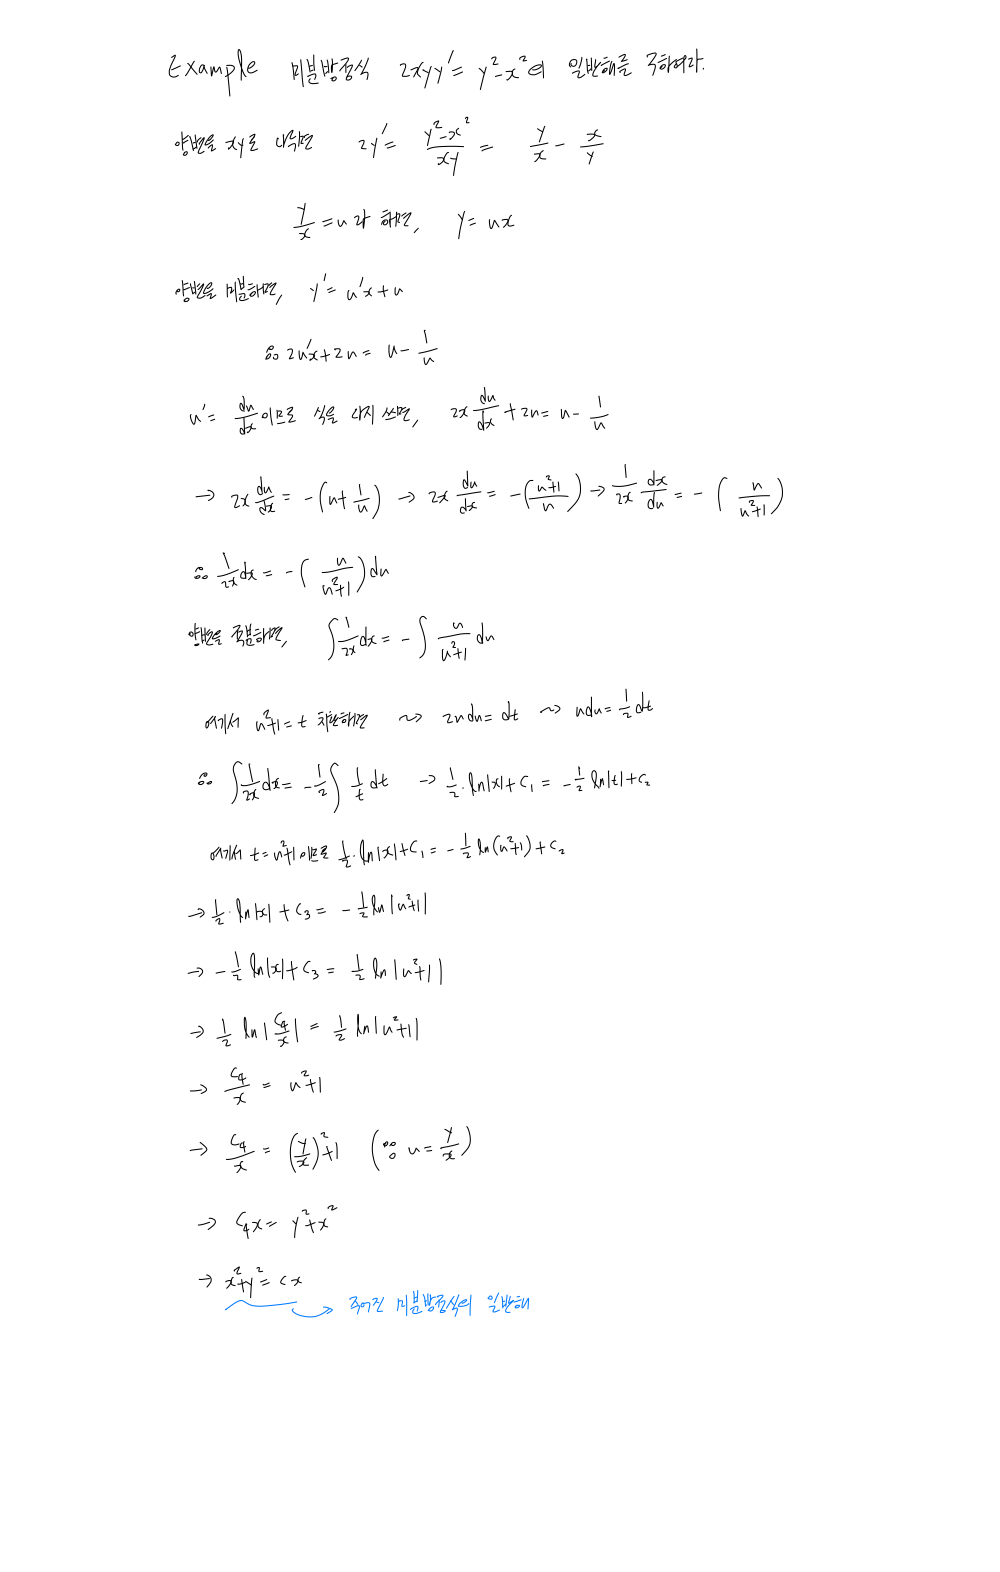 Example 미분방정식 2xyy' = y²-x²의 일반해를 구하여라.
양변을 xy로 나누면 2y' = (y²-x²)/(xy) = y/x - x/y
y/x = u라 하면, y = ux
양변을 미분하면, y' = u'x + u
∴ 2u'x + 2u = u - 1/u
u' = du/dx이므로 식을 다시 쓰면, 2x du/dx + 2u = u - 1/u
→ 2x du/dx = -(u + 1/u) → 2x du/dx = -((u²+1)/u) → 1/(2x) dx/du = -(u/(u²+1))
∴ 1/(2x) dx = -(u/(u²+1)) du
양변을 적분하면, ∫ 1/(2x) dx = -∫ u/(u²+1) du
여기서 u²+1 = t 치환하면 ~> 2udu = dt ~> udu = 1/2 dt
∴ ∫ 1/(2x) dx = -1/2 ∫ 1/t dt → 1/2 · ln|x| + C₁ = -1/2 ln|t| + C₂
여기서 t = u²+1이므로 1/2 · ln|x| + C₁ = -1/2 ln(u²+1) + C₂
→ 1/2 · ln|x| + C₃ = -1/2 ln|u²+1|
→ -1/2 ln|x| + C₃ = 1/2 ln|u²+1|
→ 1/2 ln|C₄/x| = 1/2 ln|u²+1|
→ C₄/x = u²+1
→ C₄/x = (y/x)²+1 (∵ u = y/x)
→ C₄x = y²+x²
→ x²+y² = cx
주어진 미분방정식의 일반해